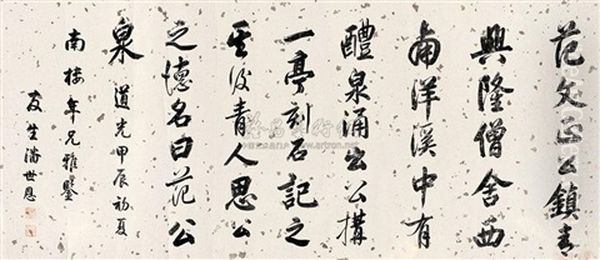 范文正公鎮青
興隆僧舍西
南洋溪中有
醴泉涌出公構
一亭刻石記之
其後青人思公
之德名曰范公
泉 道光甲辰初夏
南樓年兄雅鑒
友生潘世恩
www.artron.net